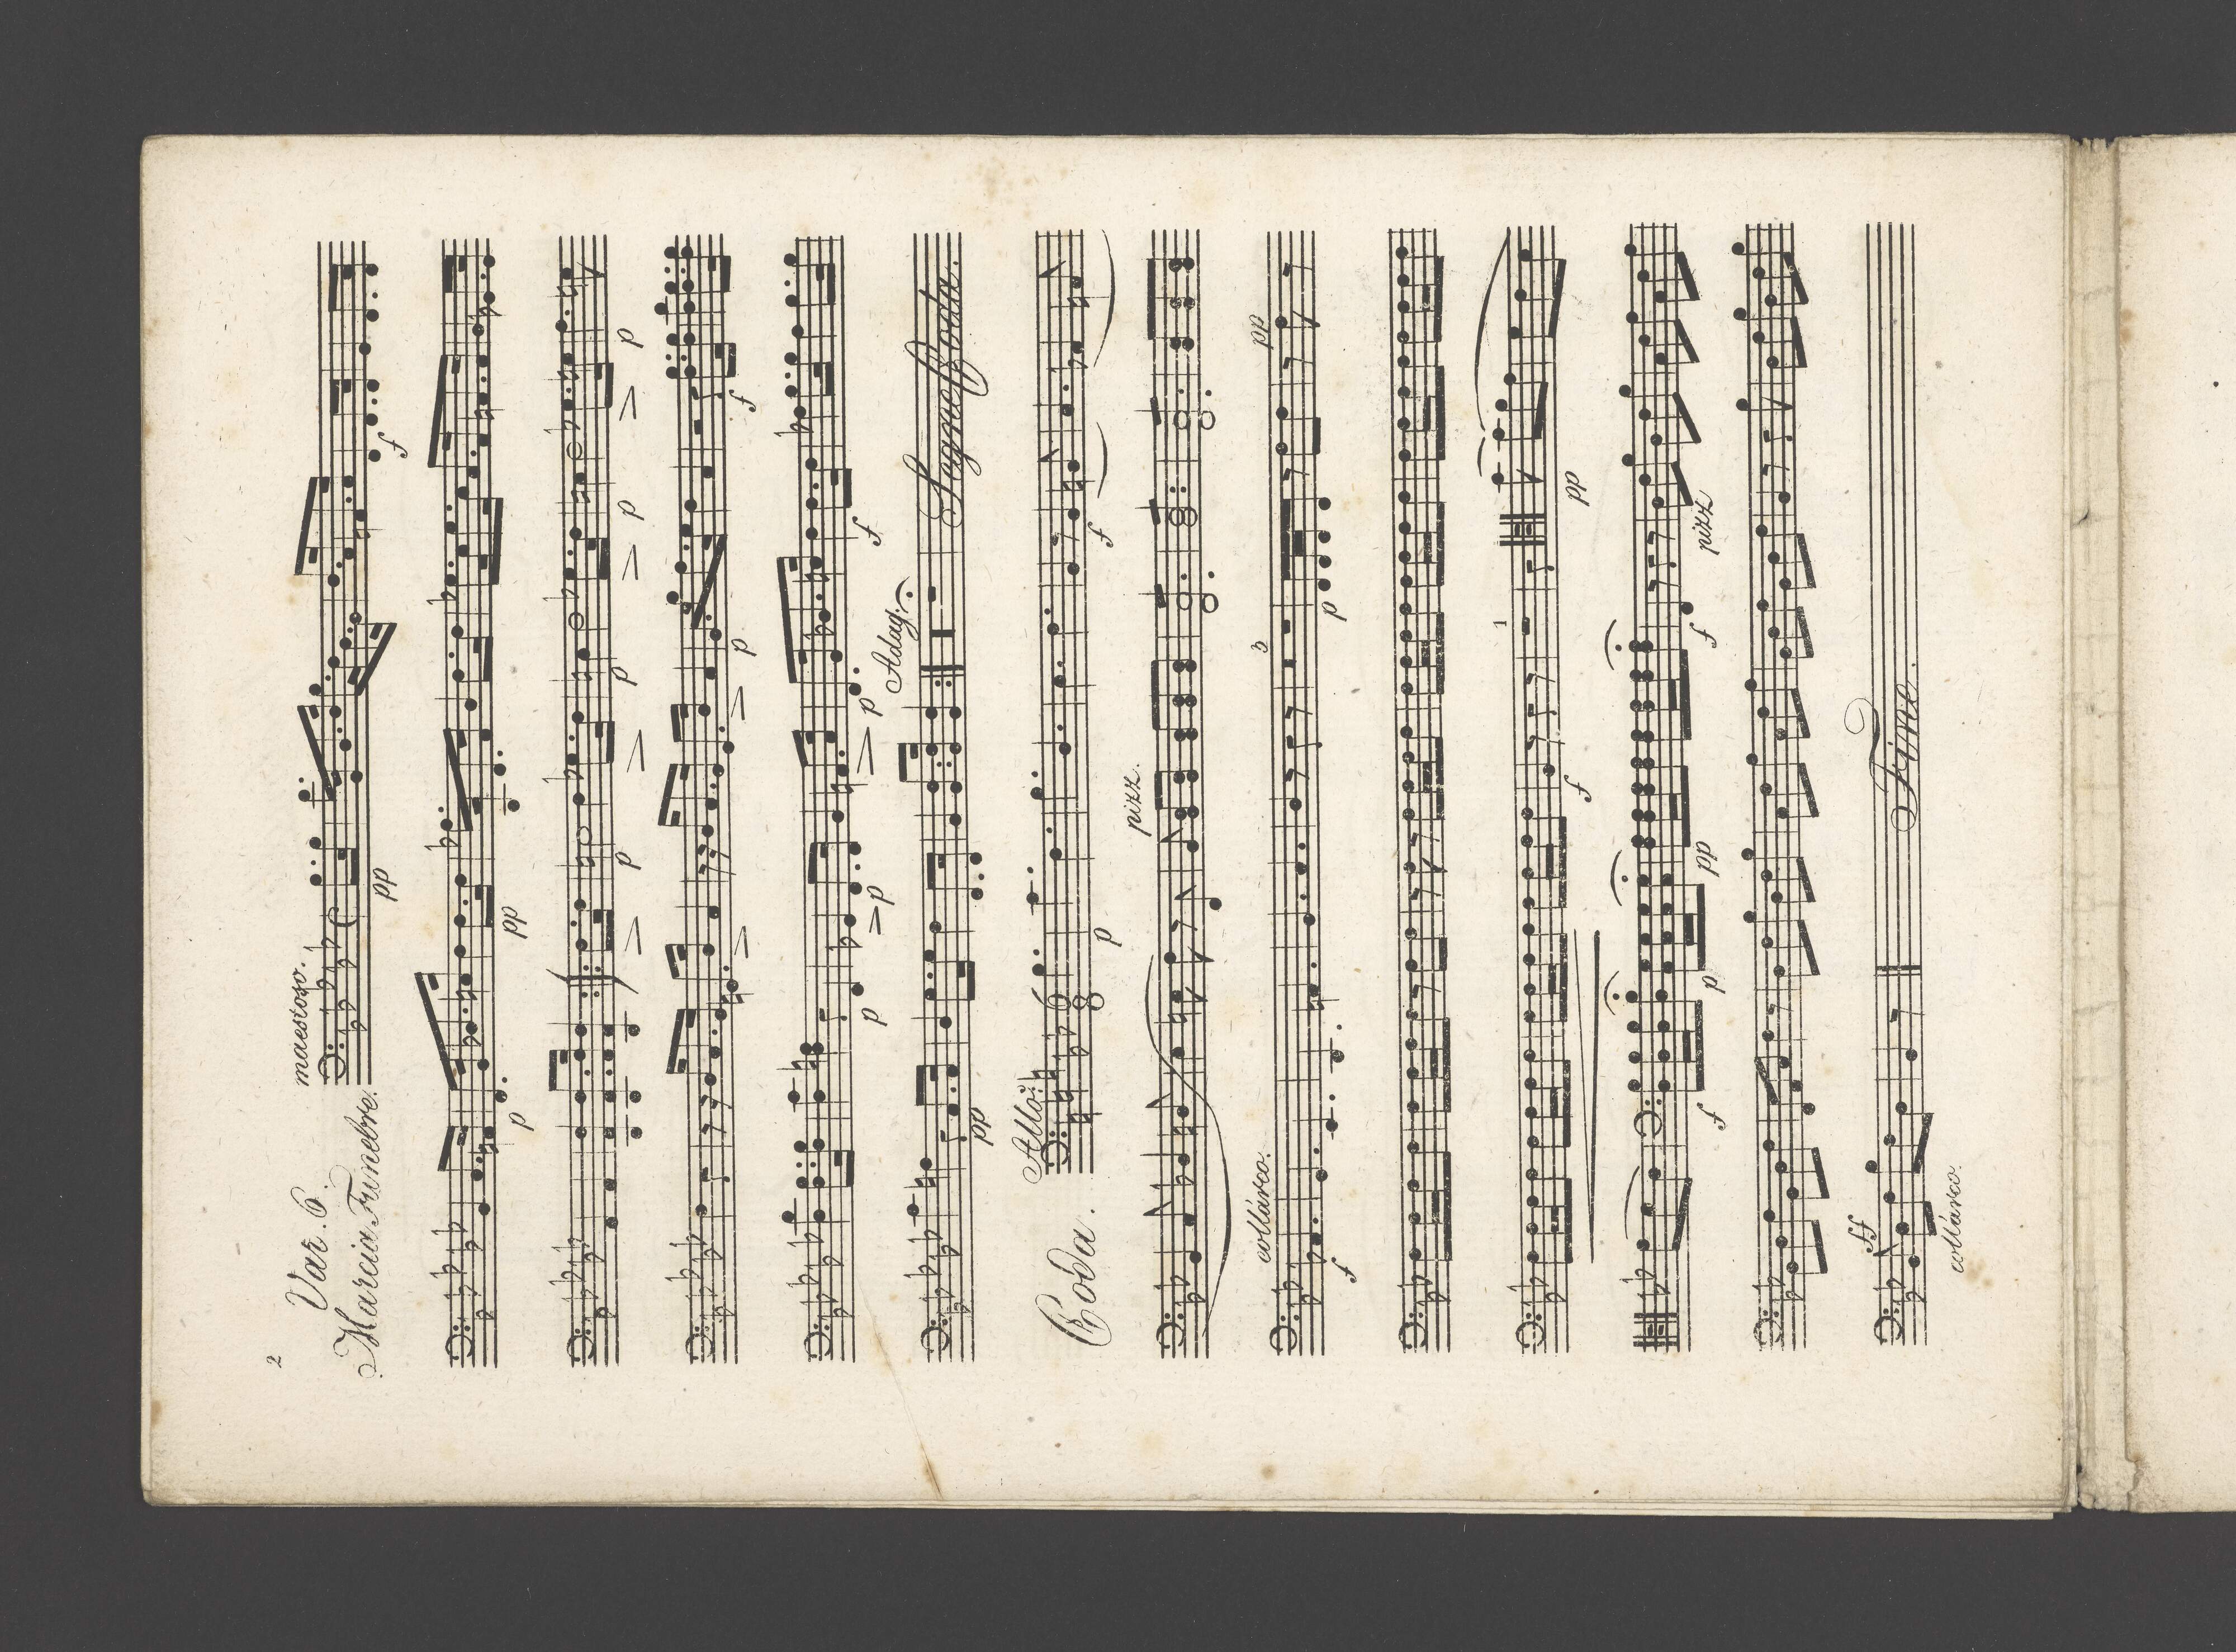 2
Var. 6. maestoso.
Marcia Funebre.
pp f
p pp
p p p p
p f
p p p f
pp Adag: Segue Coda.
Coda. Allo:
6
8
p f
pizz.
coll'arco.
f 3 p pp
f 1 pp
f p pp f pizz
ff
coll'arco.
Fine.